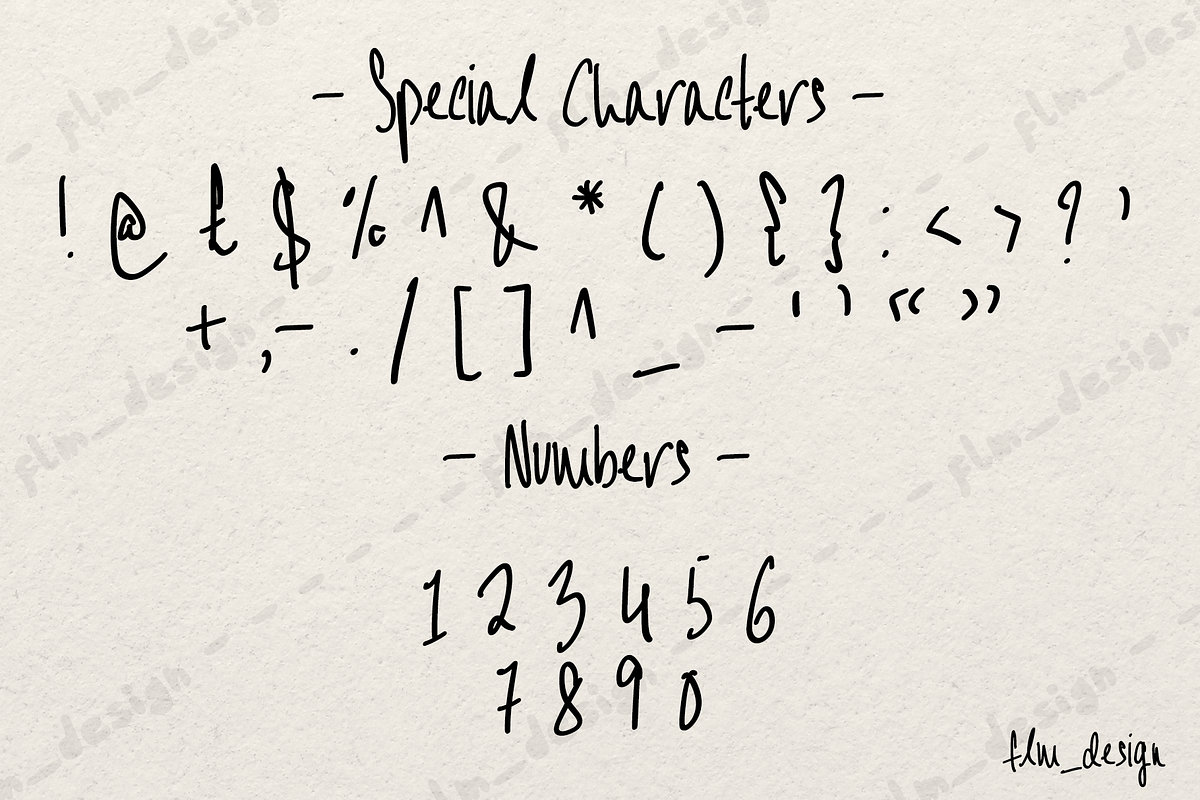 - Special Characters -
! @ £ $ % ^ & * ( ) { } : < > ? ’
+ , - . / [ ] ^ _ – ‘ ’ “ ”
- Numbers -
1 2 3 4 5 6
7 8 9 0
flm_design